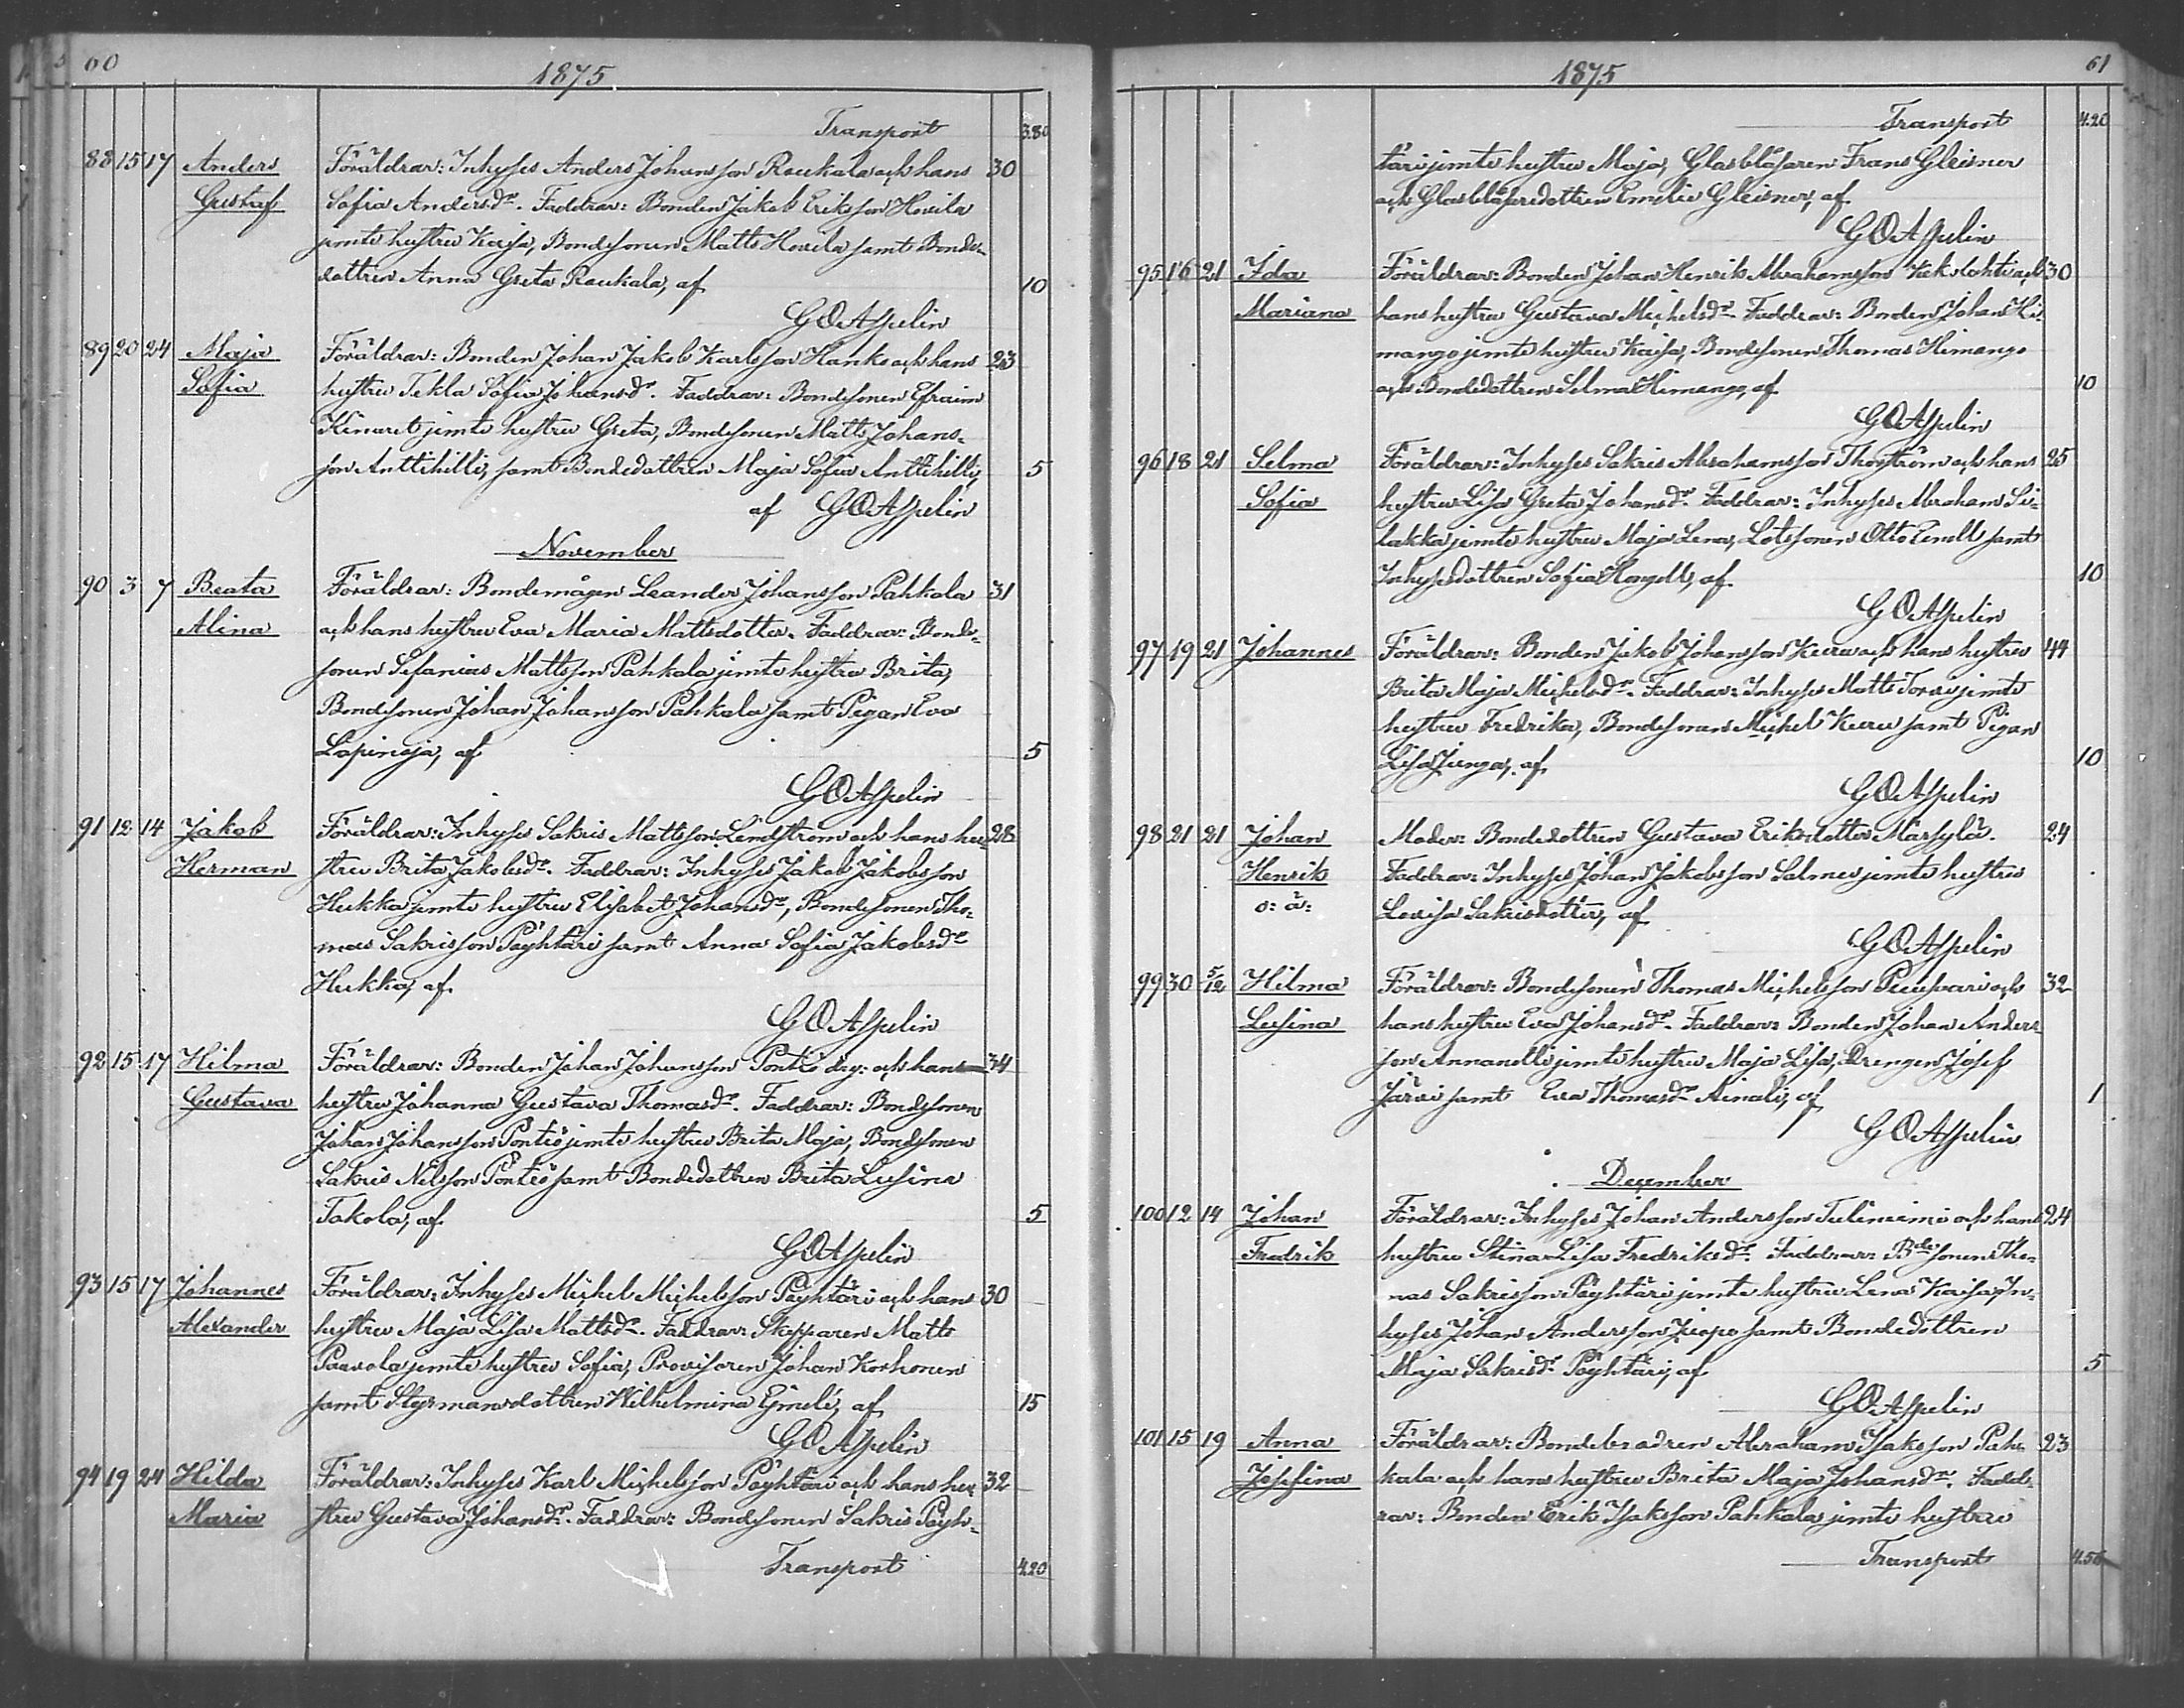 60
1875
Transport 3.80
88 15 17 Anders Föräldrar: Inhyses Anders Johansson Raukala och hans 30
Gustaf Sofia Andersdr. Faddrar: Bonden Jakob Eriksson Houila
jemte hustru Kaisa, Bondesonen Matts Houila samt Bonde-
dottren Anna Greta Raukala, af 10
GOAspelin
89 20 24 Maja Föräldrar: Bonden Johan Jakob Karlsson Hanka och hans 23
Sofia hustru Tekla Sofia Johansdr. Faddrar: Bondesonen Efraim
Kinaret jemte hustru Greta, Bondesonen Matts Johans-
son Anttihilli, samt Bondedottren Maja Sofia Anttihilli, 5
af GOAspelin
November
90 3 7 Beata Föräldrar: Bondemågen Leander Johansson Pahkala 31
Alina och hans hustru Eva Maria Mattsdotter. Faddrar: Bonde-
sonen Sefanias Mattsson Pahkala jemte hustru Brita,
Bondesonen Johan Johansson Pahkala samt Pigan Eva
Lapinoja, af 5
GOAspelin
91 12 14 Jakob Föräldrar: Inhyses Sakris Mattsson Lindström och hans hu- 28
Herman stru Brita Jakobsdr. Faddrar: Inhyses Jakob Jakobsson
Hukka jemte hustru Elisabet Johansdr, Bondesonen Tho-
mas Sakrisson Pöyhtäri samt Anna Sofia Jakobsdr
Hukka, af
GOAspelin
92 15 17 Hilma Föräldrar: Bonden Johan Johansson Pontio dy: och hans 34
Gustava hustru Johanna Gustava Thomasdr. Faddrar: Bondesonen
Johan Johansson Pontio jemte hustru Brita Maja, Bondesonen
Sakris Nilsson Pontio samt Bondedottren Brita Lusina
Takola, af 5
GOAspelin
93 15 17 Johannes Föräldrar: Inhyses Michel Michelsson Pöyhtäri och hans 30
Alexander hustru Maja Lisa Mattsdr. Faddrar: Skepparen Matts
Paavola jemte hustru Sofia, Provisoren Johan Korhonen
samt Styrmansdottren Wilhelmina Ejmelé, af 15
GOAspelin
94 19 24 Hilda Föräldrar: Inhyses Karl Michelsson Pöyhtäri och hans hu- 32
Maria stru Gustava Johansdr. Faddrar: Bondesonen Sakris Pöyh-
Transport 4.20
61
1875
Transport 4.20
täri jemte hustru Maja, Glasblåsaren Frans Gleisner
och Glasblåsaredottren Emelie Gleisner, af
GOAspelin
95 16 21 Ida Föräldrar: Bonden Johan Henrik Abrahamsson och 30
Mariana hans hustru Gustava Michelsdr. Faddrar: Bonden Johan Hi-
mango jemte hustru Kaisa, Bondesonen Thomas Himango
och Bondedottren Selma Himango, af 10
GOAspelin
96 18 21 Selma Föräldrar: Inhyses Sakris Abrahamsson Thorström och hans 25
Sofia hustru Lisa Greta Johansdr. Faddrar: Inhyses Abraham Si-
lakka jemte hustru Maja Lena, Lotssonen Otto samt
Inhysesdottren Sofia Hongell, af 10
GOAspelin
97 19 21 Johannes Föräldrar: Bonden Jakob Johansson Kuru och hans hustru 44
Brita Maja Michelsdr. Faddrar: Inhyses Matts Torvi jemte
hustru Fredrika, Bondesonen Michel Kuru samt Pigan
Lisa Junga, af 10
GOAspelin
98 21 21 Johan Moder: Bondedottren Gustava Eriksdotter Märsylä. 24
Henrik Faddrar: Inhyses Johan Jakobsson Salmu jemte hustru
o: ä: Lovisa Sakrisdotter, af
GOAspelin
99 30 5/12 Hilma Föräldrar: Bondesonen Thomas Michelsson Puusaari och 32
Lusina hans hustru Eva Johansdr. Faddrar: Bonden Johan Anders-
son Annanolli jemte hustru Maja Lisa, Drengen Josef
Järvi samt Eva Thomasdr Ainali, af 1
GOAspelin
December
100 12 14 Johan Föräldrar: Inhyses Johan Andersson Tuliniemi och hans 24
Fredrik hustru Stina Lisa Fredriksdr. Faddrar: Bdesonen Tho-
mas Sakrisson Pöyhtäri jemte hustru Lena Kaisa, In-
hyses Johan Andersson Juopo samt Bondedottren
Maja Sakrisdr Pöyhtäri, af 5
GOAspelin
101 15 19 Anna Föräldrar: Bondebrodren Abraham Isaksson Pah- 23
Josefina kala och hans hustru Brita Maja Johansdr. Fadd-
rar: Bonden Erik Isaksson Pahkala jemte hustru
Transport 4.56